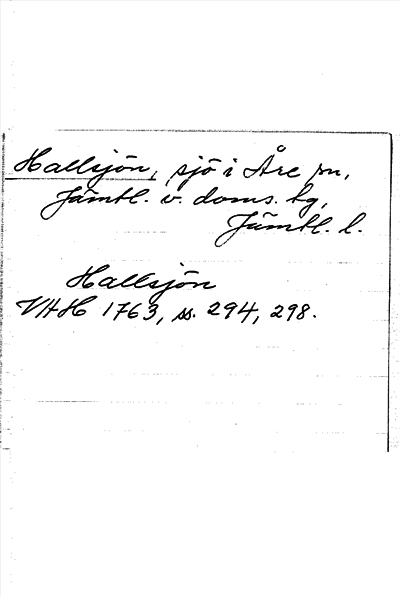 Hallsjön, sjö i Åre sn,
Jämtl. v. doms. tg,
Jämtl. l.
Hallsjön
VHH 1763, ss. 294, 298.